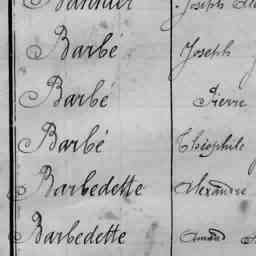 Joseph
Barbé Joseph
Barbé Pierre
Barbé Théophile
Barbedette Alexandre
Barbedette Amand